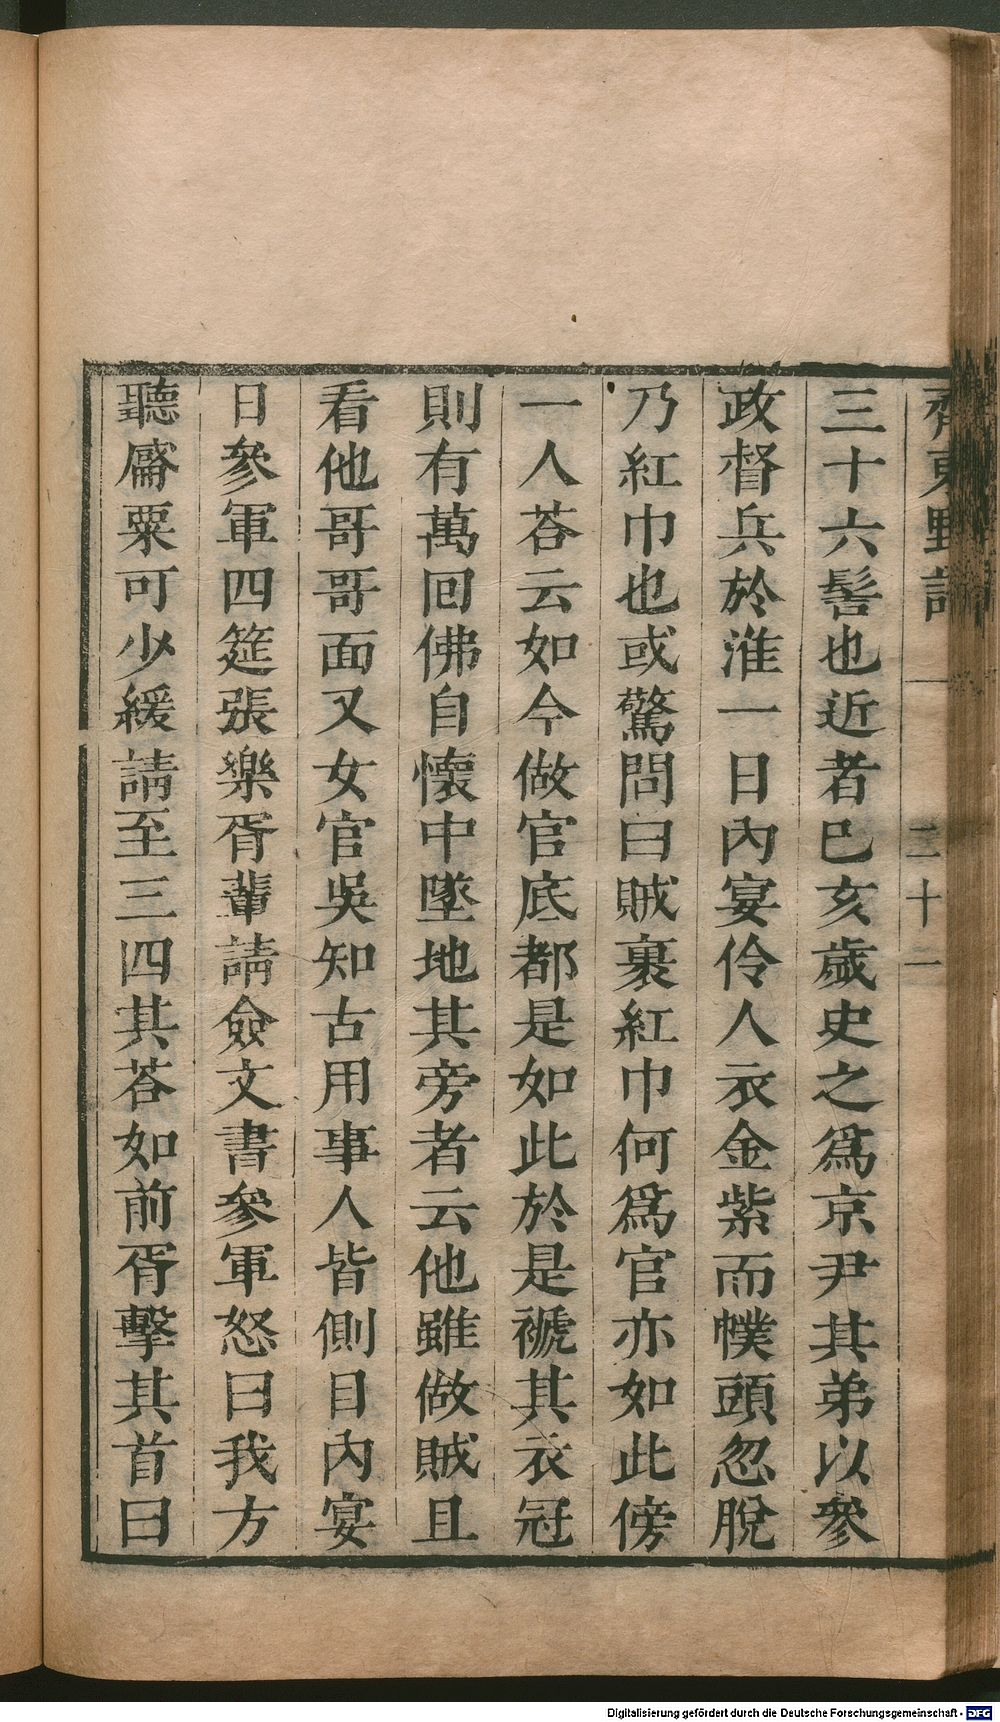 齊東野語 一 二十一
三十六髻也近者巳亥歲史之爲京尹其弟以參
政督兵於淮一日內宴伶人衣金紫而幞頭忽脫
乃紅巾也或驚問曰賊裹紅巾何爲官亦如此傍
一人荅云如今做官底都是如此於是褫其衣冠
則有萬回佛自懷中墜地其旁者云他雖做賊且
看他哥哥面又女官吳知古用事人皆側目內宴
日參軍四筵張樂胥輩請僉文書參軍怒曰我方
聽觱粟可少緩請至三四其荅如前胥擊其首曰
Digitalisierung gefördert durch die Deutsche Forschungsgemeinschaft - DFG